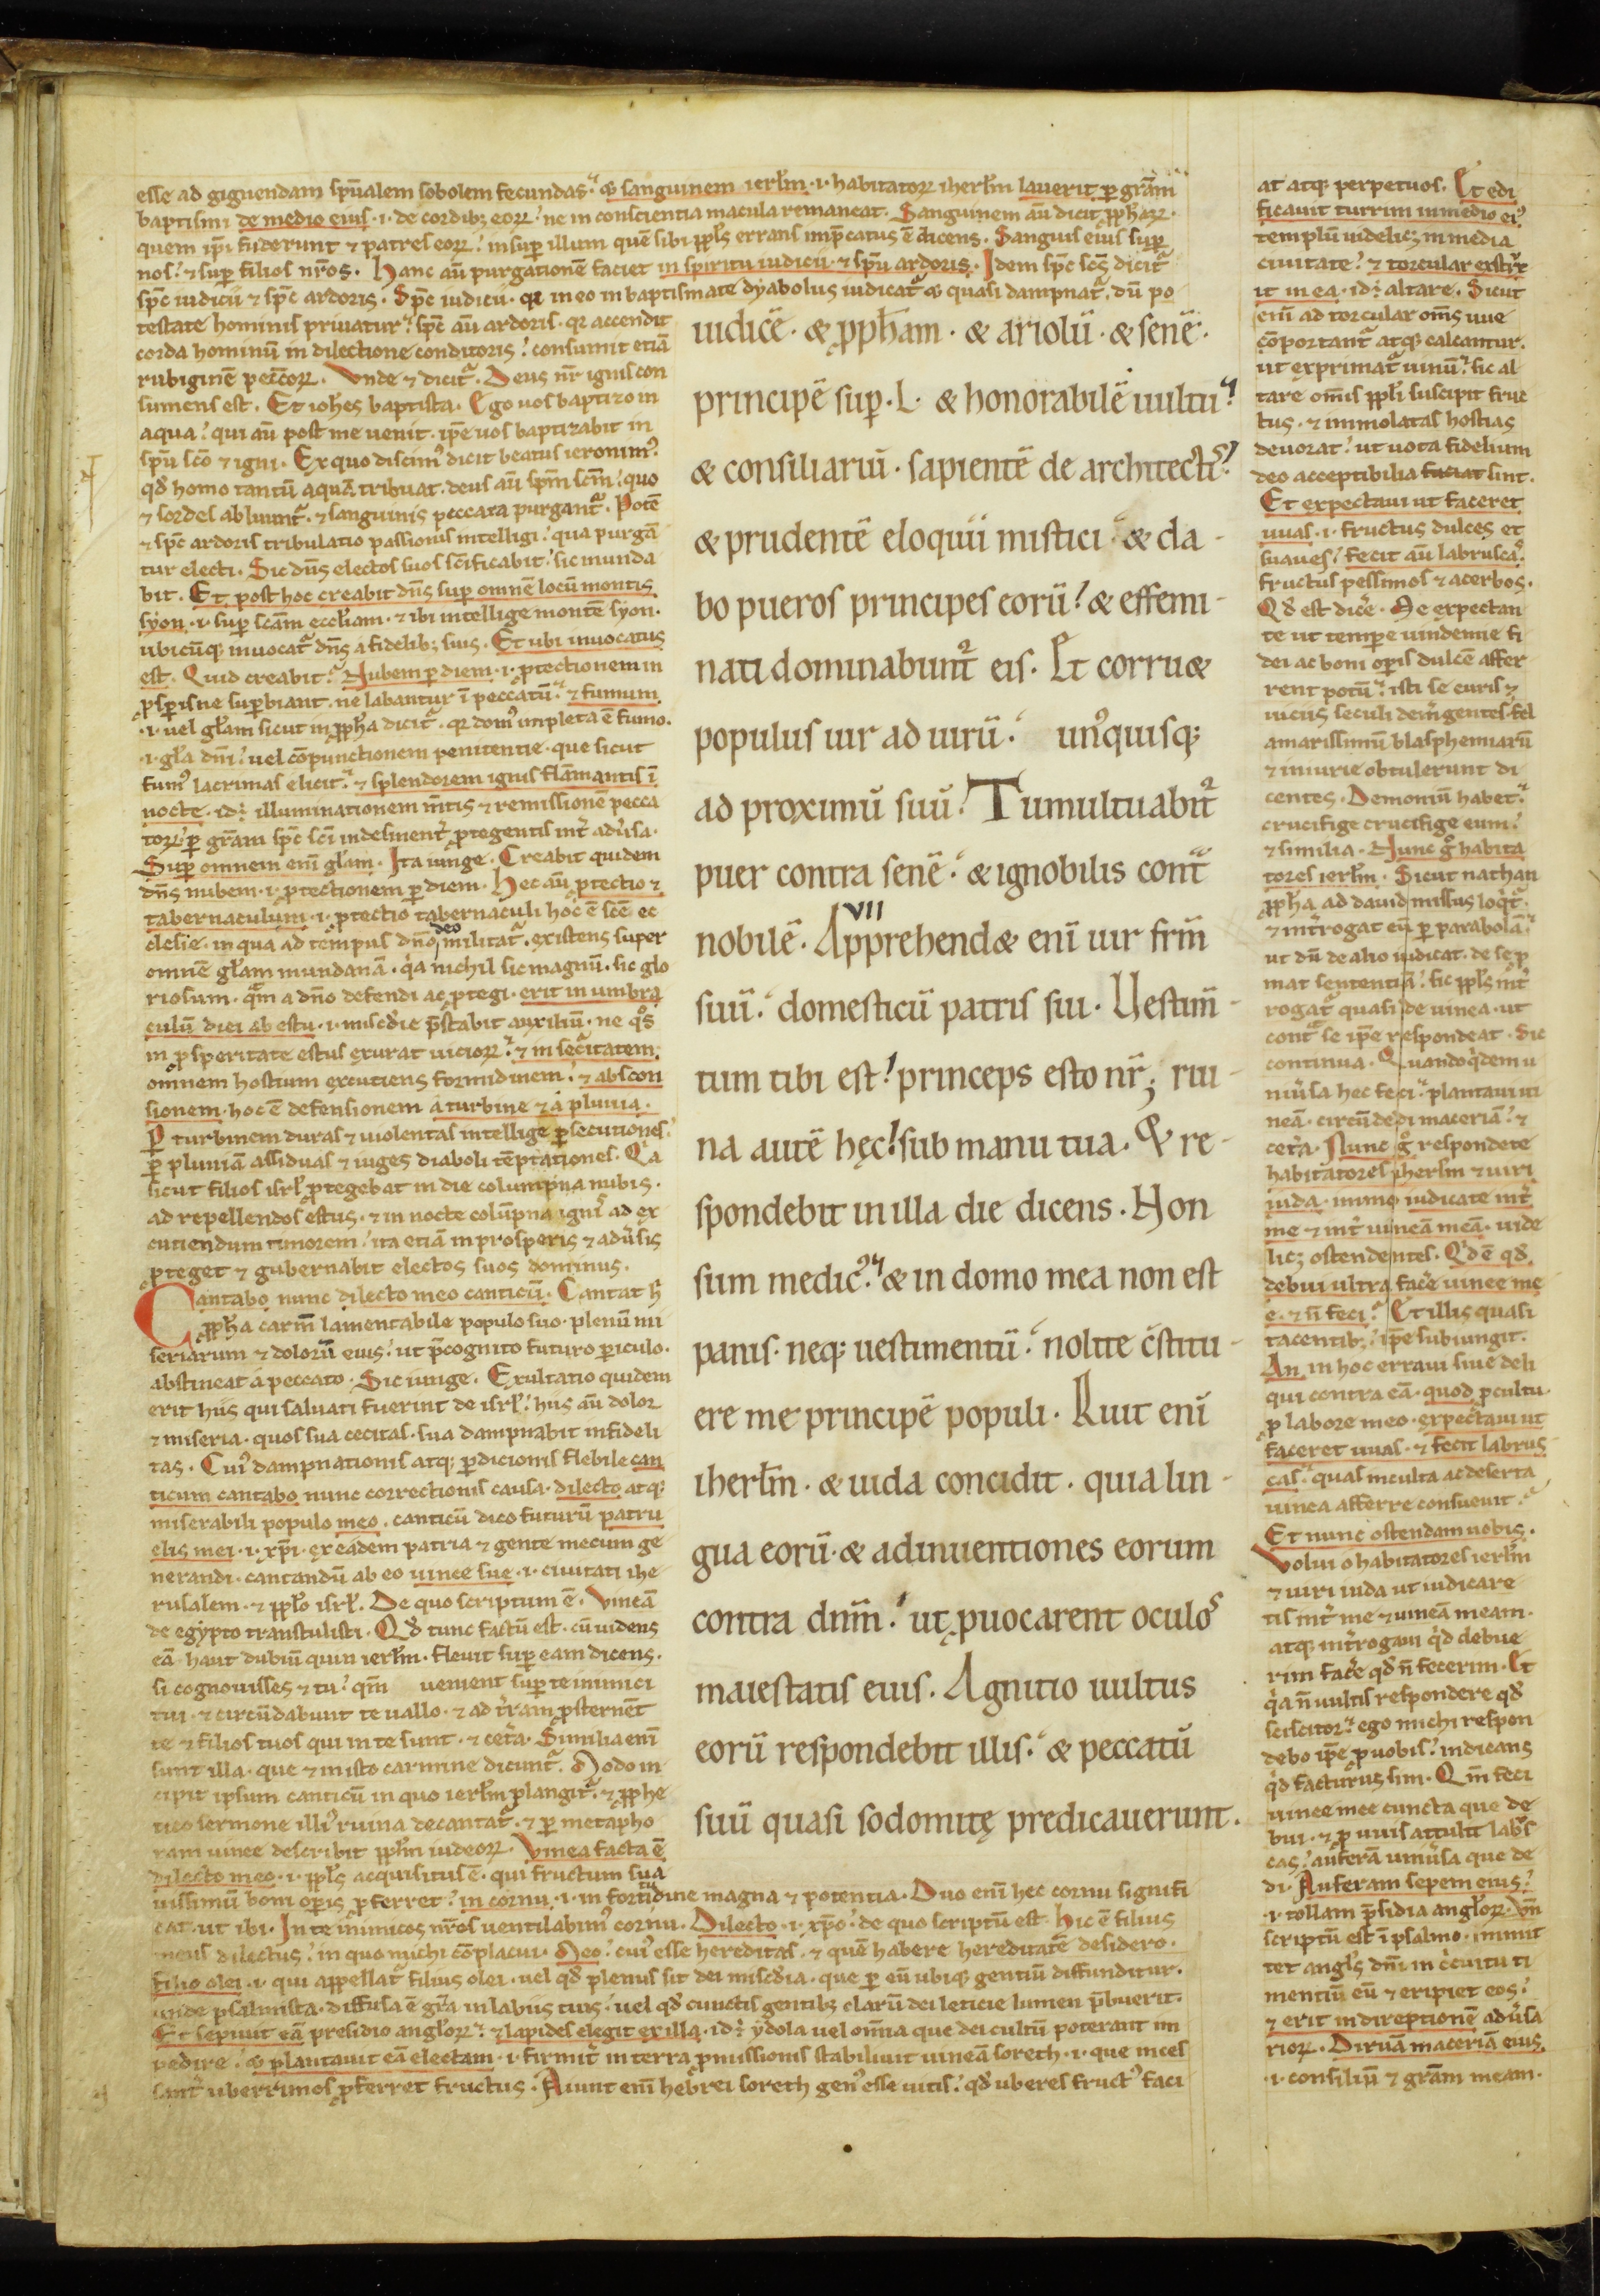 esse ad gignendam sp̄ualem sobolem fecundas. & sanguinem ierłm .i. habitatoꝝ iherłm lauerit ꝑ grām
baptismi de medio eius .i. de cordibꝫ eoꝝ. ne in conscientia macula remaneat. Sanguinem aū dicit ꝓph̄aꝝ.
quem ip̄i fuderunt ⁊ patres eoꝝ. insuꝑ illum quē sibi ꝓpłs errans imp̄catus ē dicens. Sanguis eius suꝑ
nos. ⁊ suꝑ filios nr̄os. Hanc aū purgationē faciet in spiritu iudicii. ⁊ sp̄u ardoris. Idem sp̄c sc̄s dicit᷑
sp̄c iudicii ⁊ sp̄c ardoris. Sp̄c iudicii. qr in eo in baptismate dyabolus iudicat᷑ & quasi dampnat᷑. dū po
testate hominis priuatur. sp̄c aū ardoris. qr accendit
corda hominū in dilectione conditoris. consumit etiā
rubiginē pecc̄oꝝ. Vnde ⁊ dicit᷑. Deus nr̄ ignis con
sumens est. Et ioh̄es baptista. Ego uos baptizo in
aqua. qui aū post me uenit. ip̄e uos baptizabit in
sp̄u sc̄o ⁊ igni. Ex quo discimꝰ dicit beatus ieronimꝰ.
qd̄ homo tantū aquā tribuat. deus aū sp̄m sc̄m. quo
⁊ sordes abluunt᷑. ⁊ sanguinis peccata purgant᷑. Potē
⁊ sp̄c ardoris tribulatio passionis intelligi. qua purgā
tur electi. Sic dn̄s electos suos sc̄ificabit. sic munda
bit. Et post hoc creabit dn̄s suꝑ omnē locū montis
syon .i. suꝑ sc̄am eccłiam. ⁊ ibi intellige montē syon.
ubicūqꝫ inuocat᷑ dn̄s a fidelibꝫ suis. Et ubi inuocatus
est. Quid creabit. Nubem ꝑ diem .i. ꝓtectionem in
ꝓsꝑis ne suꝑbiant. ne labantur ī peccatū. ⁊ fumum
.i. uel głam sicut in ꝓph̄a dicit᷑. qr domꝰ impleta ē fumo.
.i. gła dn̄i. uel cōpunctionem penitentie. que sicut
fumꝰ lacrimas elicit. ⁊ splendorem ignis flāmantis ī
nocte. id÷ illuminationem m̄tis ⁊ remissionē pecca
toꝝ. ꝑ grām sp̄c sc̄i indesinent᷑ ꝓtegentis int᷑ adu᷑sa.
Suꝑ omnem enī głam. Ita iunge. Creabit quidem
dn̄s nubem .i. ꝓtectionem ꝑ diem. Hec aū ꝓtectio ⁊
tabernaculum .i. ꝓtectio tabernaculi hoc ē sc̄e ec
clesie. in qua ad tempus dn̄o deo militat᷑. existens super
omnē głam mundanā. qa nichil sic magnū. sic glo
riosum. qm̄ a dn̄o defendi ac ꝓtegi. erit in umbra
culū diei ab estu .i. misc̄die p̄stabit auxiliū. ne qo̊s
in ꝓsperitate estus exurat uicioꝝ. ⁊ in sec᷑itatem.
omnem hostium excutiens formidinem. ⁊ abscon
sionem. hoc ē defensionem a turbine ⁊ a pluuia.
Ꝑ turbinem duras ⁊ uiolentas intellige ꝑsecutiones.
ꝑ pluuiā assiduas ⁊ iuges diaboli tēptationes. Qa
sicut filios isrł ꝓtegebat in die columpna nubis.
ad repellendos estus. ⁊ in nocte colūpna ignis ad ex
cutiendum timorem. ita etiā in prosperis ⁊ adu᷑sis
ꝓteget ⁊ gubernabit electos suos dominus.
Cantabo nunc dilecto meo canticū. Cantat h̄
ꝓph̄a carm̄ lamentabile populo suo. plenū mi
seriarum ⁊ dolorū eius. ut p̄cognito futuro ꝑiculo.
abstineat a peccato. Sic iunge. Exultatio quidem
erit hiis qui saluati fuerint de isrł. hiis aū dolor
⁊ miseria. quos sua cecitas. sua dampnabit infideli
tas. Cuiꝰ dampnationis atqꝫ ꝑdicionis flebile can
ticum cantabo nunc correctionis causa. dilecto atqꝫ
miserabili populo meo. canticū dico futurū patru
elis mei .i. xp̄i. ex eadem patria ⁊ gente mecum ge
nerandi. cantandū ab eo uinee sue .i. ciuitati ihe
rusalem. ⁊ ꝓpło isrł. De quo scriptum ē. Vineā
de egypto transtulisti. Qd̄ tunc factū est. cū uidens
eā haut dubiū quin ierłm. fleuit suꝑ eam dicens.
si cognouisses ⁊ tu. qm̄ uenient suꝑ te inimici
tui. ⁊ circūdabunt te uallo. ⁊ ad t᷑ram ꝓsternēt
te ⁊ filios tuos qui in te sunt. ⁊ cet᷑a. Similia enī
sunt illa. que ⁊ in isto carmine dicunt᷑. Modo in
cipit ipsum canticū in quo ierłm plangit᷑. ⁊ ꝓphe
tico sermone illiꝰ ruina decantat᷑. ⁊ ꝑ metapho
ram uinee describit ꝓpłm iudeoꝝ. Vinea facta ē
dilecto meo .i. ꝓpłs acquisitus ē. qui fructum sua
uissimū boni oꝑis ꝓferret. in cornu .i. in fortitudine magna ⁊ potentia. Duo enī hec cornu signifi
cat. ut ibi. In te inimicos nr̄os uentilabimꝰ cornu. Dilecto .i. xp̄o. de quo scriptū est. Hic ē filius
meus dilectus. in quo michi cōplacui. Meo. cuiꝰ esse hereditas. ⁊ quē habere hereditatē desidero.
filio olei .i. qui appellat᷑ filius olei. uel qd̄ plenus sit dei misc̄dia. que ꝑ eū ubiqꝫ gentiū diffunditur.
unde psalmista. diffusa ē gr̄a in labiis tuis. uel qd̄ cunctis gentibꝫ clarū dei leticie lumen p̄buerit.
Et sepiuit eā presidio angłoꝝ. ⁊ lapides elegit ex illa. id÷ ydola uel om̄ia que dei cultū poterant im
pedire. & plantauit eā electam .i. firmit᷑ in terra ꝓmissionis stabiliuit uineā soreth .i. que inces
sant᷑ uberrimos ꝓferret fructus. Aiunt enī hebrei soreth genꝰ esse uitis. qd̄ uberes fructꝰ faci
iudicē. & ꝓph̄am. & ariolū. & senē.
principē suꝑ .L. & honorabilē uultu.
& consiliariū. sapientē de architectis.
& prudentē eloquii mistici. & da-
bo pueros principes eorū. & effemi-
nati dominabunt᷑ eis. Et corruet
populus uir ad uirū. unꝰquisqꝫ
ad proximū suū. Tumultuabit᷑
puer contra senē. & ignobilis cont᷑
nobilē. VII Apprehendet enī uir fr̄m
suū. domesticū patris sui. Uestim̄-
tum tibi est. princeps esto nr̄; rui-
na autē hęc. sub manu tua. & re-
spondebit in illa die dicens. Non
sum medicꝰ. & in domo mea non est
panis. neqꝫ uestimentū. nolite c̄stitu-
ere me principē populi. Ruit enī
iherłm. & iuda concidit. quia lin-
gua eorū. & adinuentiones eorum
contra dnm̄. ut ꝓuocarent oculos
maiestatis eius. Agnitio uultus
eorū respondebit illis. & peccatū
suū quasi sodomitę predicauerunt.
at atqꝫ perpetuos. Et edi
ficauit turrim in medio eiꝰ
templū uidelicꝫ in media
ciuitate. ⁊ torcular extr᷑x
it in ea. id÷ altare. Sicut
enī ad torcular om̄s uue
cōportant᷑ atqꝫ calcantur.
ut exprimat᷑ uinū. sic al
tare om̄is ꝓpłi suscipit fruc
tus. ⁊ immolatas hostias
deuorat. ut uota fidelium
deo acceptibilia faciat sint.
Et expectaui ut faceret
uuas .i. fructus dulces et
suaues. fecit aū labruscas.
fructus pessimos ⁊ acerbos.
Qd̄ est dic᷑e. Me expectan
te ut tempe uindemie fi
dei ac boni oꝑis dulcē affer
rent potū. isti se curis ⁊
uiciis seculi dem᷑gentes. fel
amarissimū blasphemiarū
⁊ iniurie obtulerunt di
centes. Demoniū habet.
crucifige crucifige eum.
⁊ similia. Nunc g̊ habita
tores ierłm. Sicut nathan
ꝓph̄a ad dauid missus loqit᷑.
⁊ int᷑rogat eū ꝑ parabolā.
ut dū de alio iudicat. de se ꝓ
mat sententiā. sic ꝓpłs int᷑
rogat᷑ quasi de uinea. ut
cont᷑ se ip̄e respondeat. Sic
continua. Quandoqidem u
niu᷑sa hec feci. plantaui ui
neā. circūdedi maceriā. ⁊
cet᷑a. Nunc g̊ respondete
habitatores iherłm ⁊ uiri
iuda. immo iudicate int᷑
me ⁊ int᷑ uineā meā. uide
licꝫ ostendentes. Qd ē qd̄
debui ultra fac᷑e uinee me
e. ⁊ n̄ feci. Et illis quasi
tacentibꝫ. ip̄e subiungit.
An in hoc erraui siue deli
qui contra eā. quod ꝓ cultu.
ꝓ labore meo. expectaui ut
faceret uuas. ⁊ fecit labrus
cas. quas inculta ac deserta
uinea afferre consueuit.
Et nunc ostendam uobis.
Volui o habitatores ierłm
⁊ uiri iuda ut iudicare
tis int᷑ me ⁊ uineā meam.
atqꝫ int᷑rogaui qid debue
rim fac᷑e qd̄ n̄ fecerim. Et
qa n̄ uultis respondere qd̄
sciscitor. ego michi respon
debo ip̄e ꝓ uobis. indicans
qid facturus sim. Qm̄ feci
uinee mee cuncta que de
bui. ⁊ ꝓ uuis attulit labrus
cas. auferā uniu᷑sa que de
di. Auferam sepem eius.
.i. tollam p̄sidia angłoꝝ. Vn̄
scriptū est ī psalmo. immit
tet angłs dn̄i in c᷑cuitu ti
mentiū eū ⁊ eripiet eos.
⁊ erit in direptionē adu᷑sa
rioꝝ. Diruā maceriā eius.
.i. consiliū ⁊ grām meam.